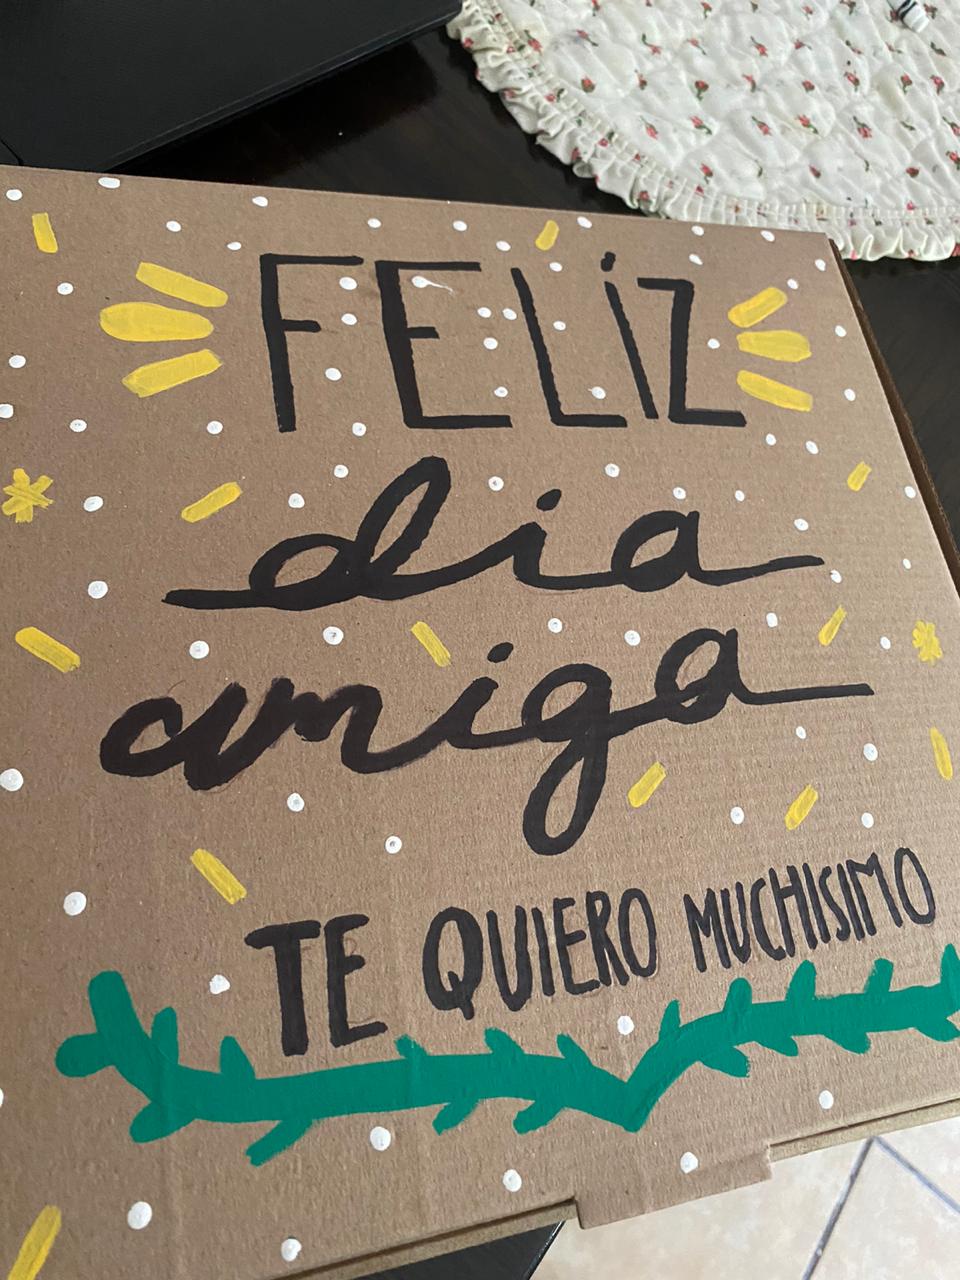 FELiZ
dia
amiga
TE QUIERO MUCHISIMO